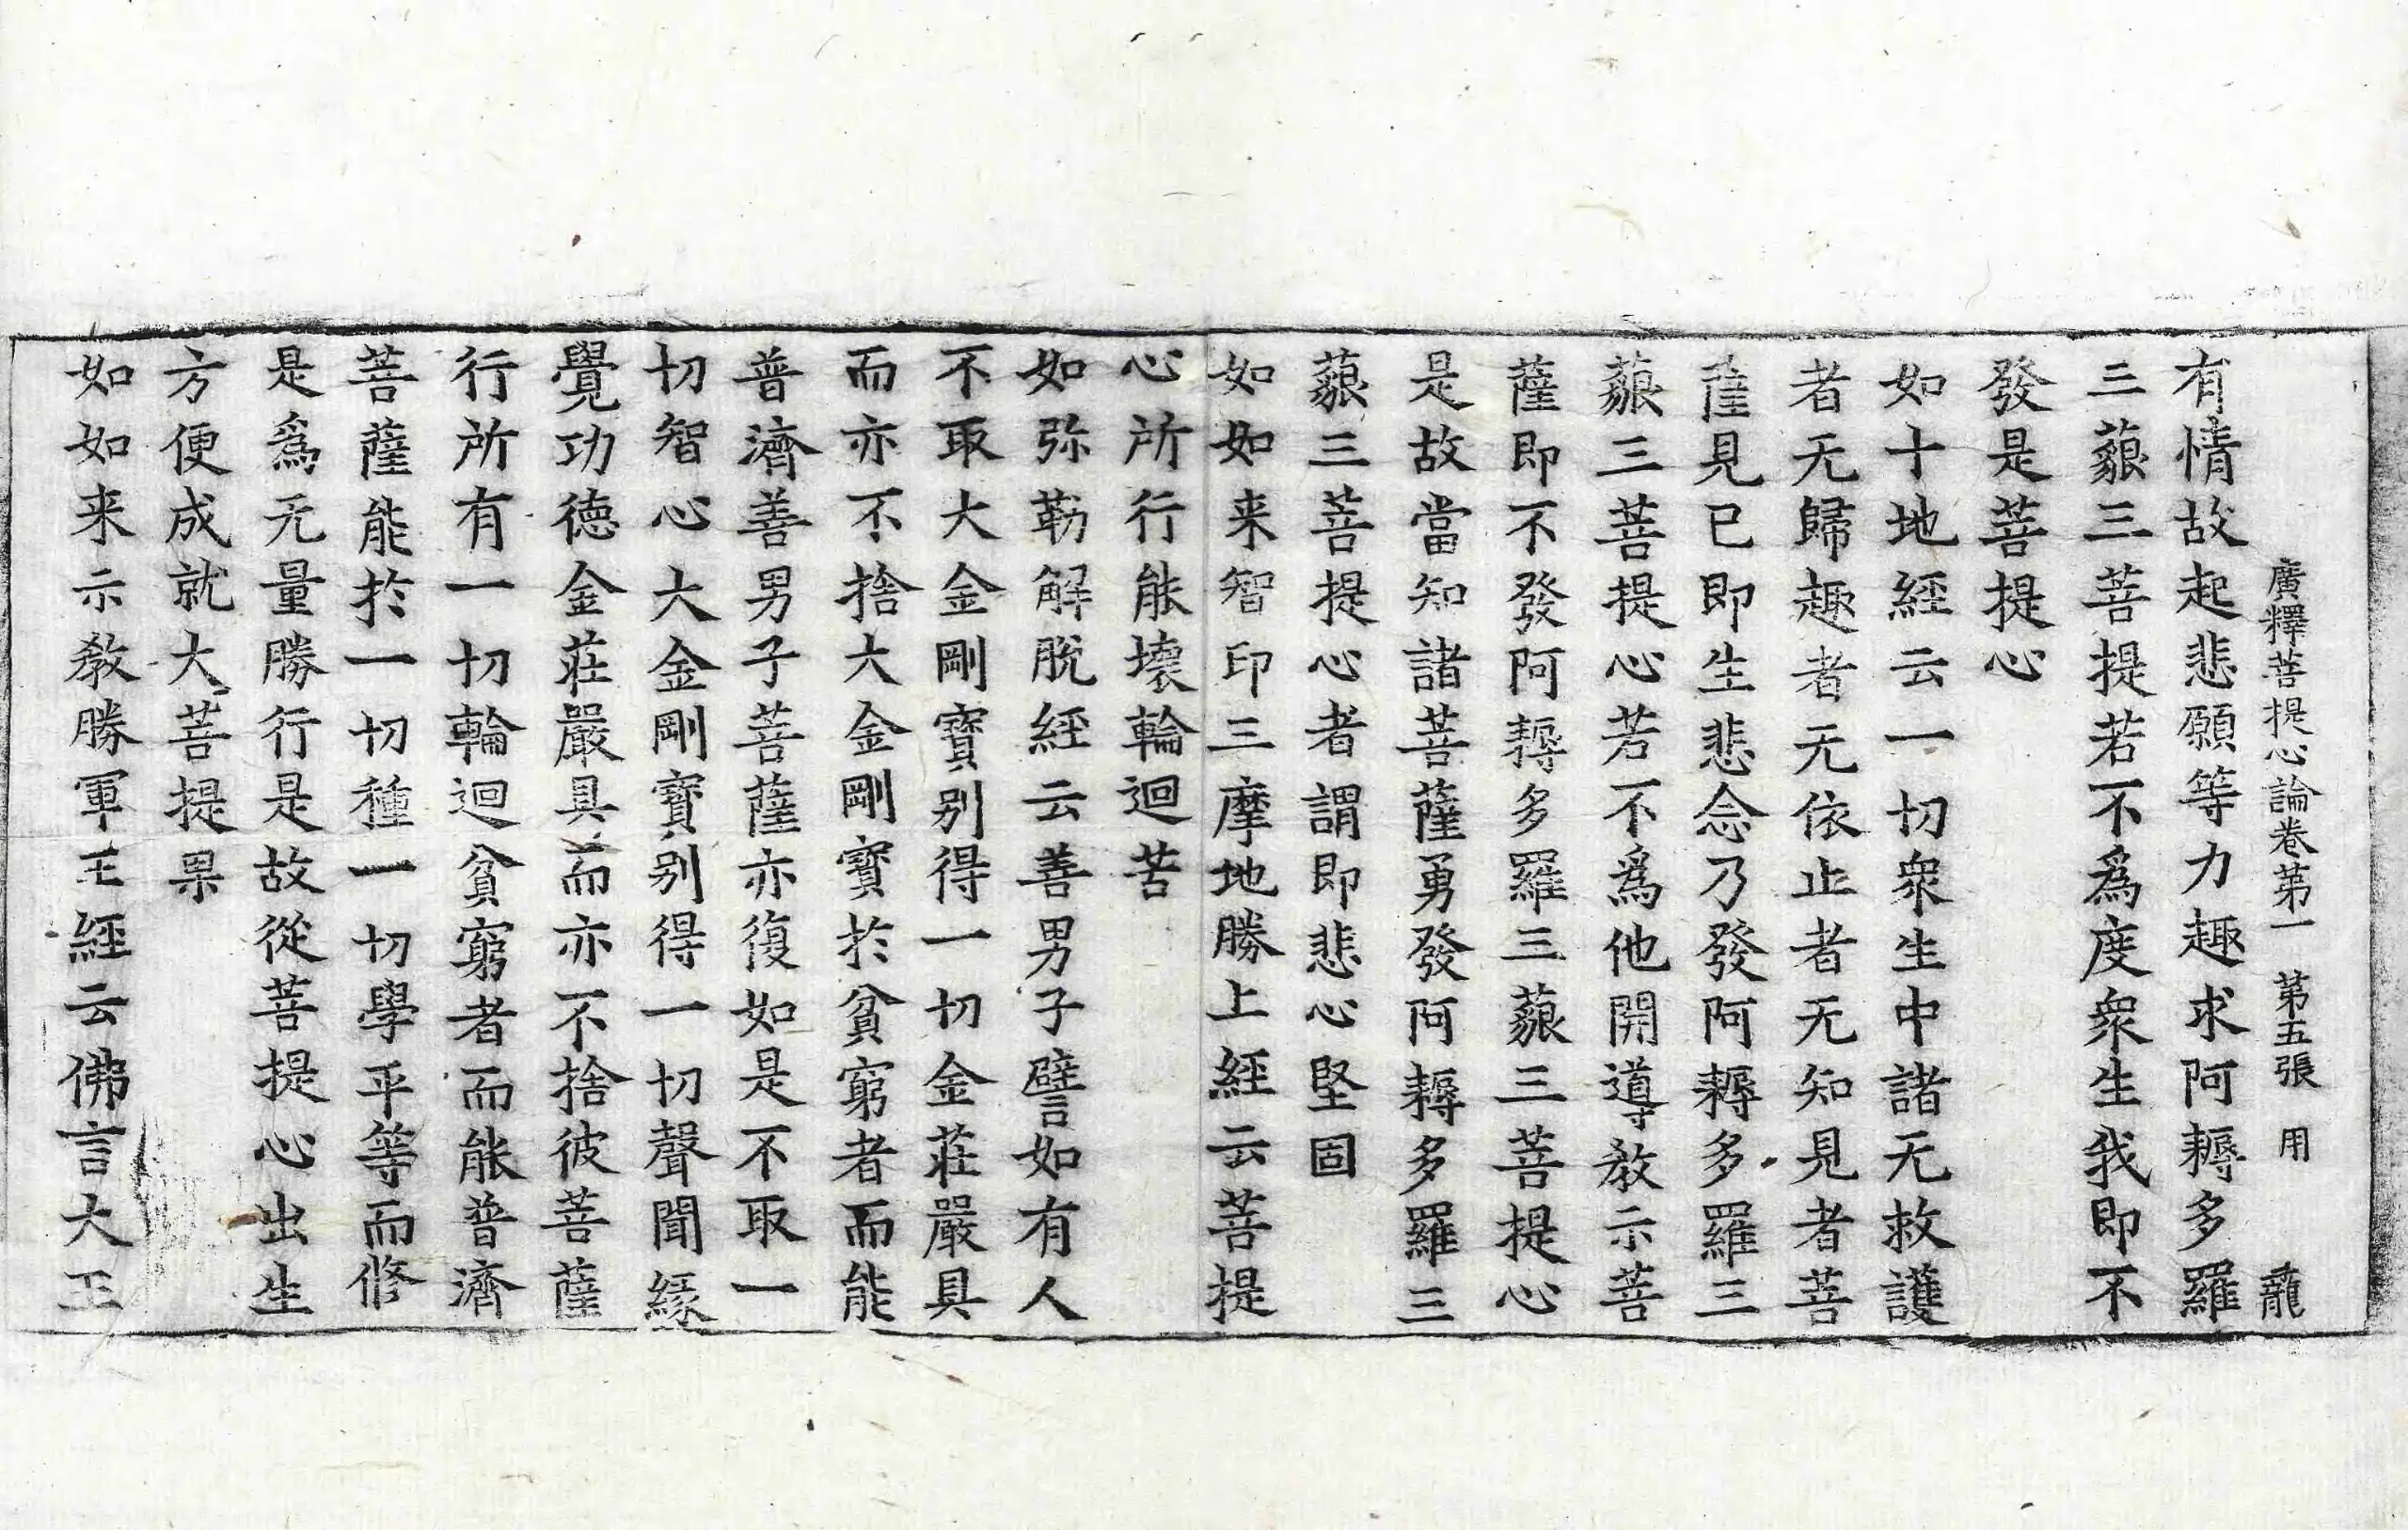 廣釋菩提心論卷第一 第五張 用 龍
有情故起悲願等力趣求阿耨多羅
三藐三菩提若不為度衆生我即不
發是菩提心
如十地經云一切衆生中諸无救護
者无歸趣者无依止者无知見者菩
薩見已即生悲念乃發阿耨多羅三
藐三菩提心若不為他開導教示菩
薩即不發阿耨多羅三藐三菩提心
是故當知諸菩薩勇發阿耨多羅三
藐三菩提心者謂即悲心堅固
如如来智印三摩地勝上經云菩提
心所行能壞輪迴苦
如弥勒解脫經云善男子譬如有人
不取大金剛寶别得一切金莊嚴具
而亦不捨大金剛寶於貧窮者而能
普濟善男子菩薩亦復如是不取一
切智心大金剛寶别得一切聲聞緣
覺功德金莊嚴具而亦不捨彼菩薩
行所有一切輪迴貧窮者而能普濟
菩薩能於一切種一切學平等而修
是為无量勝行是故從菩提心出生
方便成就大菩提果
如如来示教勝軍王經云佛言大王